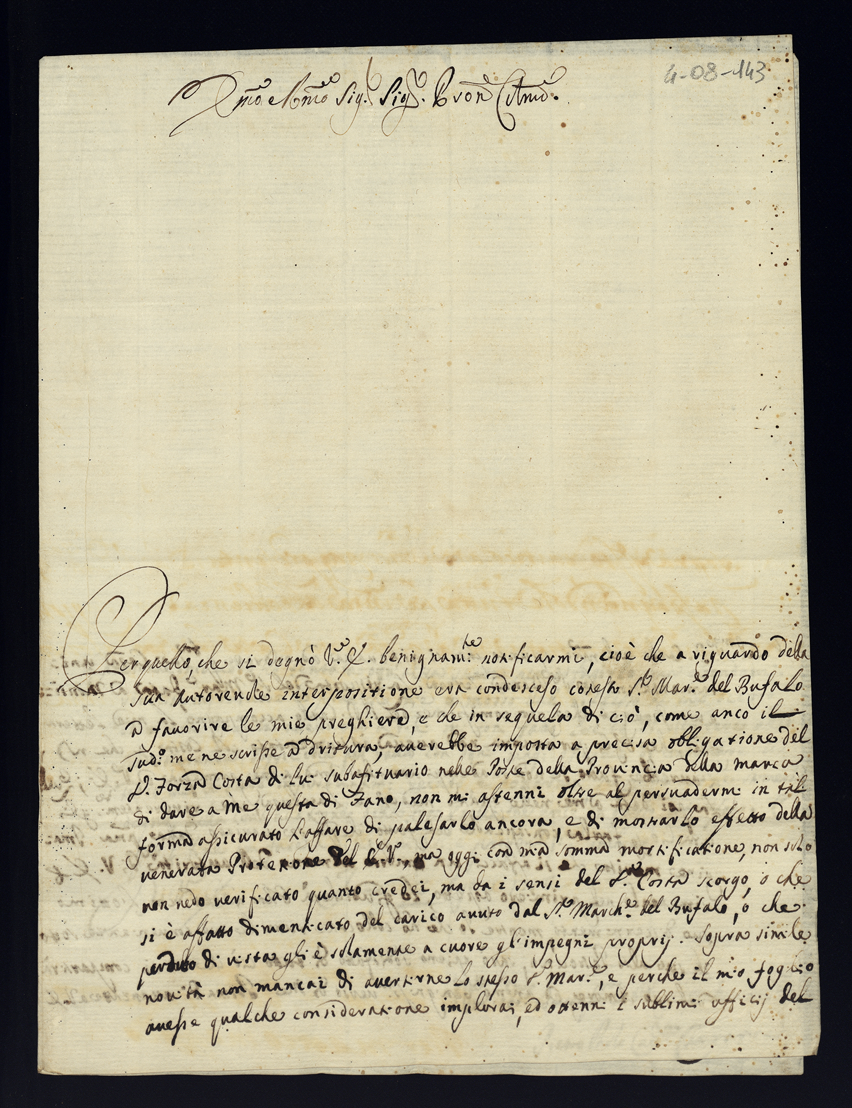 4-08-143
Emo e Rmo Sig.r Sig.r Pron Colmo.
Per quello, che si degnò V.ra E. benignam.te notificarmi, cioè che a riguardo della
sua autorevole interpositione era condesceso cotesto S.r Mar.e del Bufalo
a favorire le mie preghiere, e che in seguela di ciò, come anco il
sud.o me ne scrisse a dritura, averebbe imposta a precisa obligatione del
S.r Forza Costa di lui subafituario nelle Poste della Provincia della Marca
di dare a Me questa di Fano, non mi astenni oltre al persuadermi in tal
forma assicurato l'affare di palesarlo ancora, e di mostrarlo effetto della
venerata Protetione del E.V., ma oggi con mia somma mortificatione, non solo
non vedo verificato quanto credei, ma da i sensi del S.r Costa scorgo, o che
si è affatto dimenticato del carico avuto dal S.r March.e del Bufalo, o che
perduto di vista gli è solamente a cuore gl'impegni proprij. Sopra simile
novità non mancai di avertirne lo stesso S.r Mar.e, e perche il mio foglio
avesse qualche consideratione implorai, ed ottenni i sublimi officij del